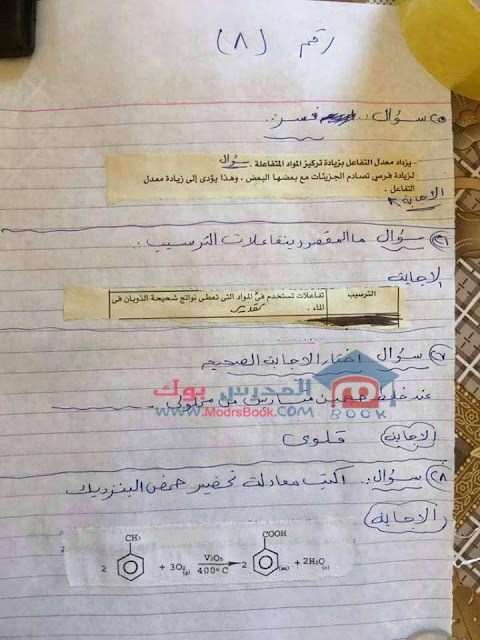 رقم (٨)
٢٥ سؤال: فسر:
- يزداد معدل التفاعل بزيادة تركيز المواد المتفاعلة . سؤال
لزيادة فرص تصادم الجزيئات مع بعضها البعض ، وهذا يؤدى إلى زيادة معدل
التفاعل .
الاجابة
٢٦ سؤال ما المقصود بتفاعلات الترسيب:
الاجابة
الترسيب
تفاعلات تستخدم فى تقدير المواد التى تعطى نواتج شحيحة الذوبان فى
الماء .
٢٧ سؤال اختار الاجابة الصحيحه
المدرس بوك
BOOK
www.ModrsBook.com
عند خلط حجمين من محلولى
الاجابة قلوى
٢٨ سؤال: اكتب معادلة تحضير حمض البنزويك
الاجابة
CH₃ COOH
2 + 3O₂(g) V₂O₅ 400°C 2 (aq) + 2H₂O(v)